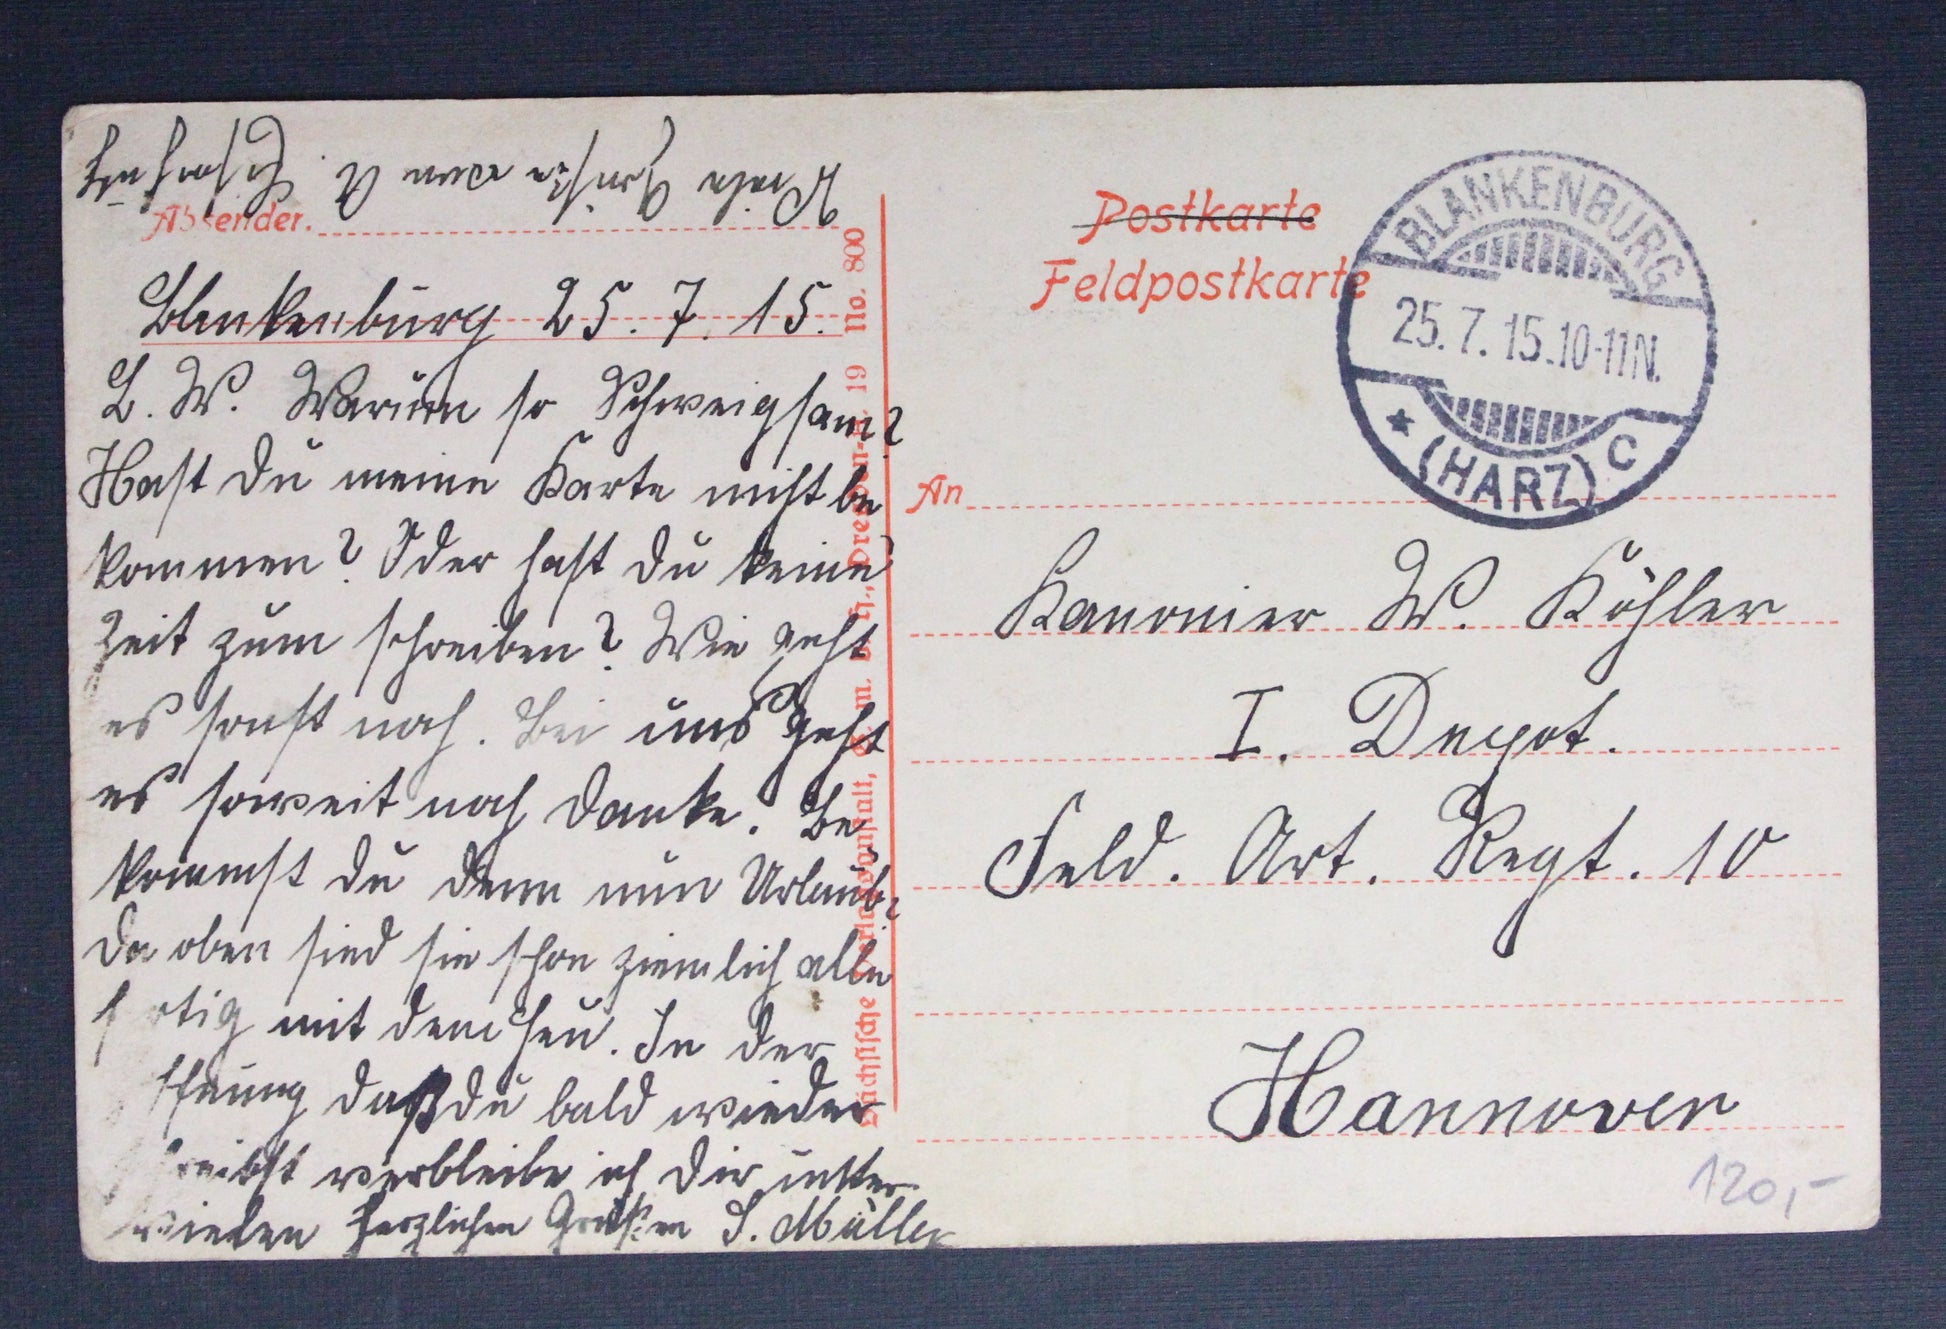 Viele Grüße von A.
Absender.
Blankenburg 25. 7. 15.
L. W. Warum so Schweigsam?
Hast du meine Karte nicht be
kommen? Oder hast du keine
Zeit zum schreiben? Wie geht
es sonst noch. Bei uns geht
es soweit noch danke. Be
kommst du denn nun Urlaub?
Da oben sind sie schon ziemlich alle
fertig mit dem Heu. In der
ffnung daß du bald wieder
reibst verbleibe ich dir unter
vielen herzlichen Grüßen S. Müller
Sächsische Verlagsanstalt, G. m. b. H., Dresden-A. 19 No. 800
Postkarte
Feldpostkarte
BLANKENBURG
25. 7. 15. 10-11N.
* (HARZ) C
An
Kanonier W. Köhler
I. Depot.
Feld. Art. Regt. 10
Hannover
120,-